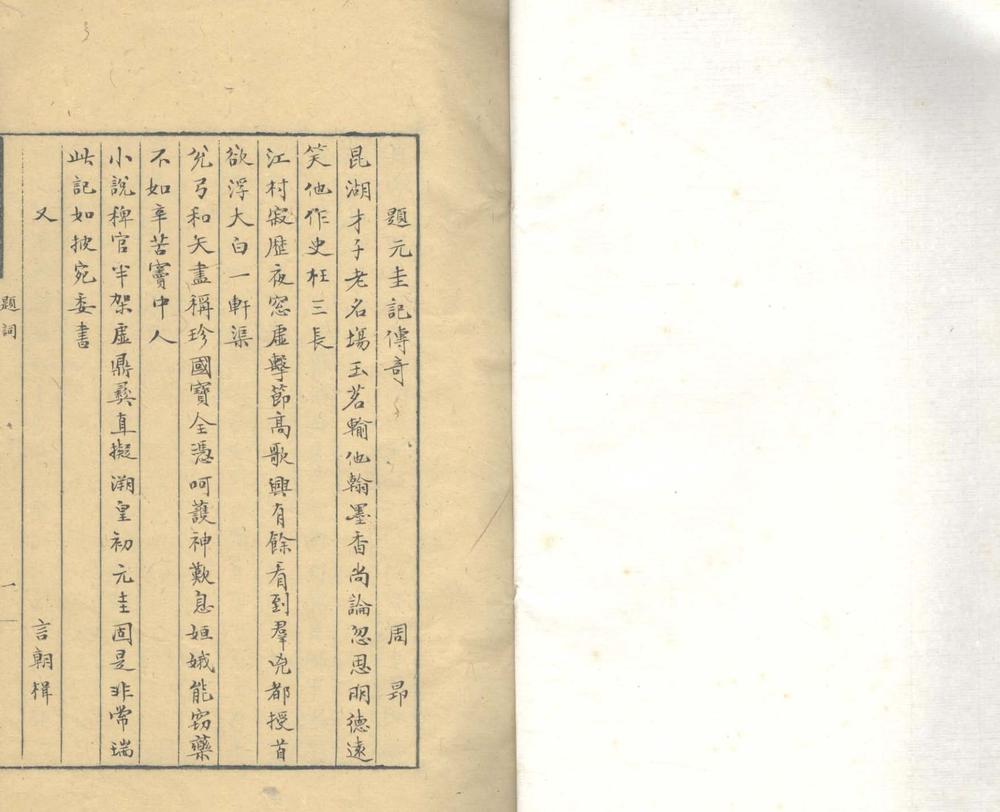 題元圭記傳奇 周昂
昆湖才子老名塲玉茗輸他翰墨香尚論忽思明德遠
笑他作史枉三長
江村寂歷夜窓虛擊節高歌興有餘看到羣兇都授首
欲浮大白一軒渠
兊弓和矢盡稱珍國寶全憑呵護神歎息姮娥能竊藥
不如辛苦竇中人
小說稗官半架虛鼎彞直擬溯皇初元圭固是非常瑞
此記如披宛委書
又 言朝楫
題詞 一